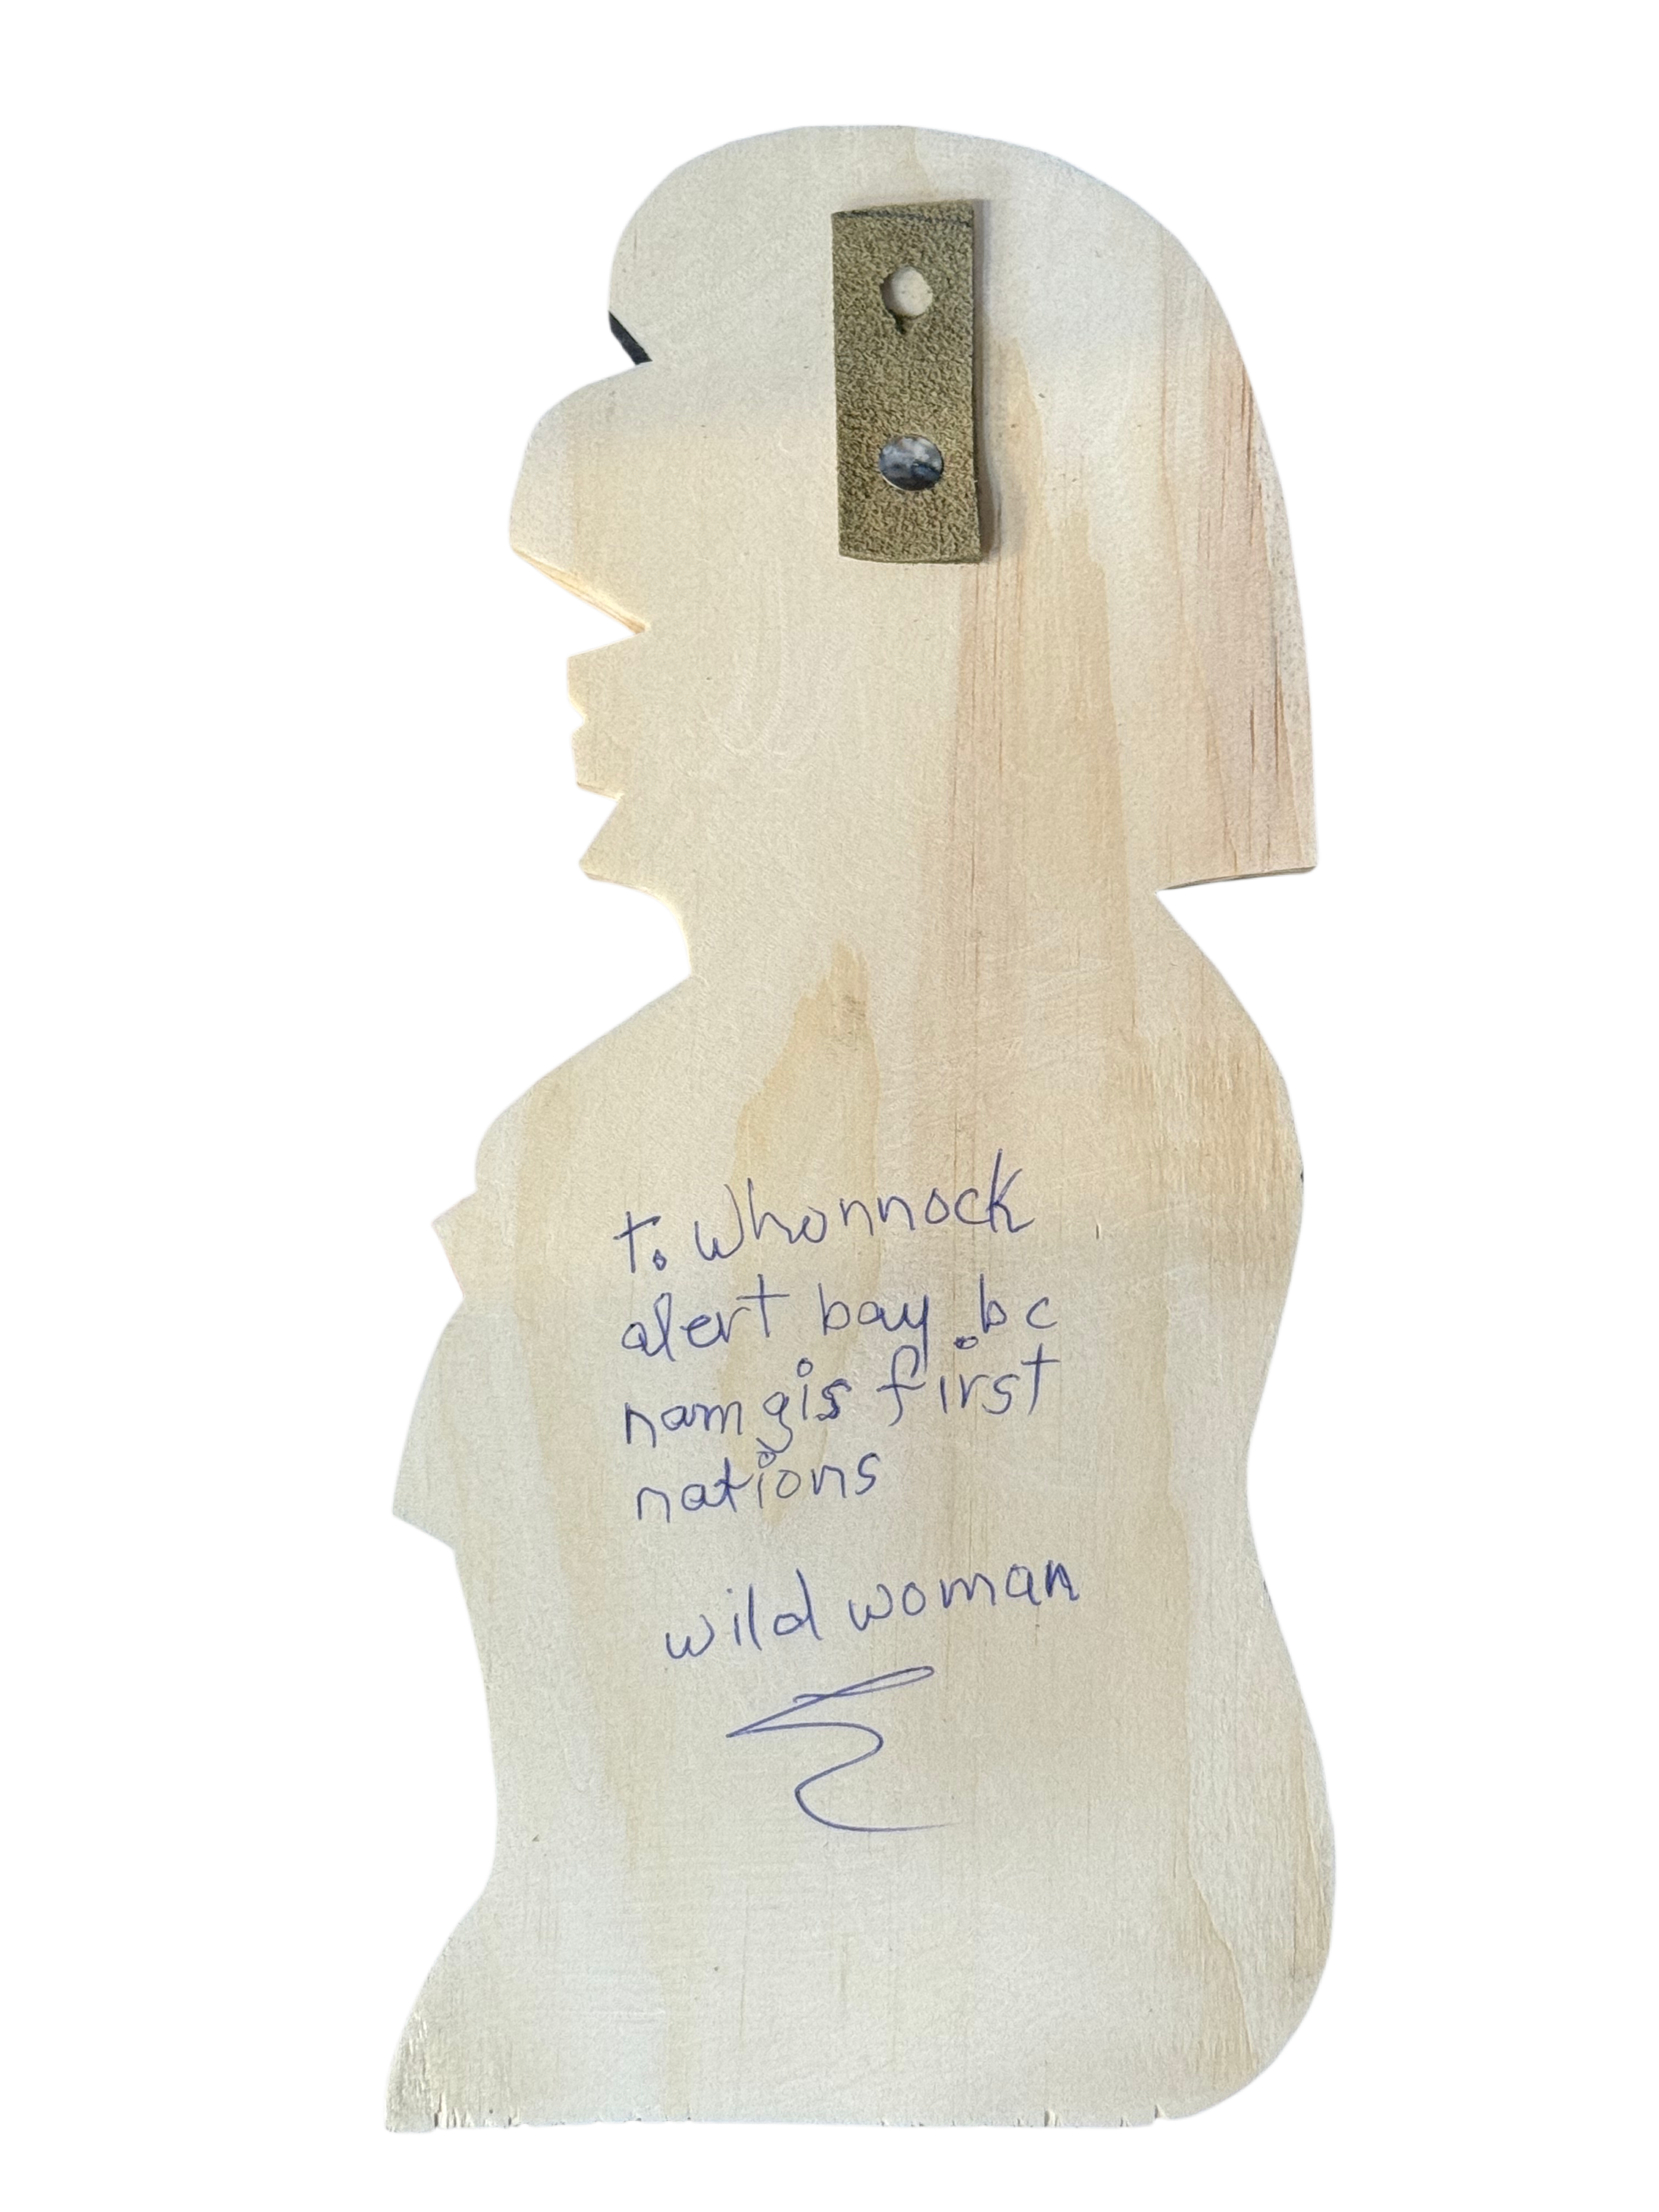 t. Whonnock
alert bay. bc
namgis first
nations
wild woman